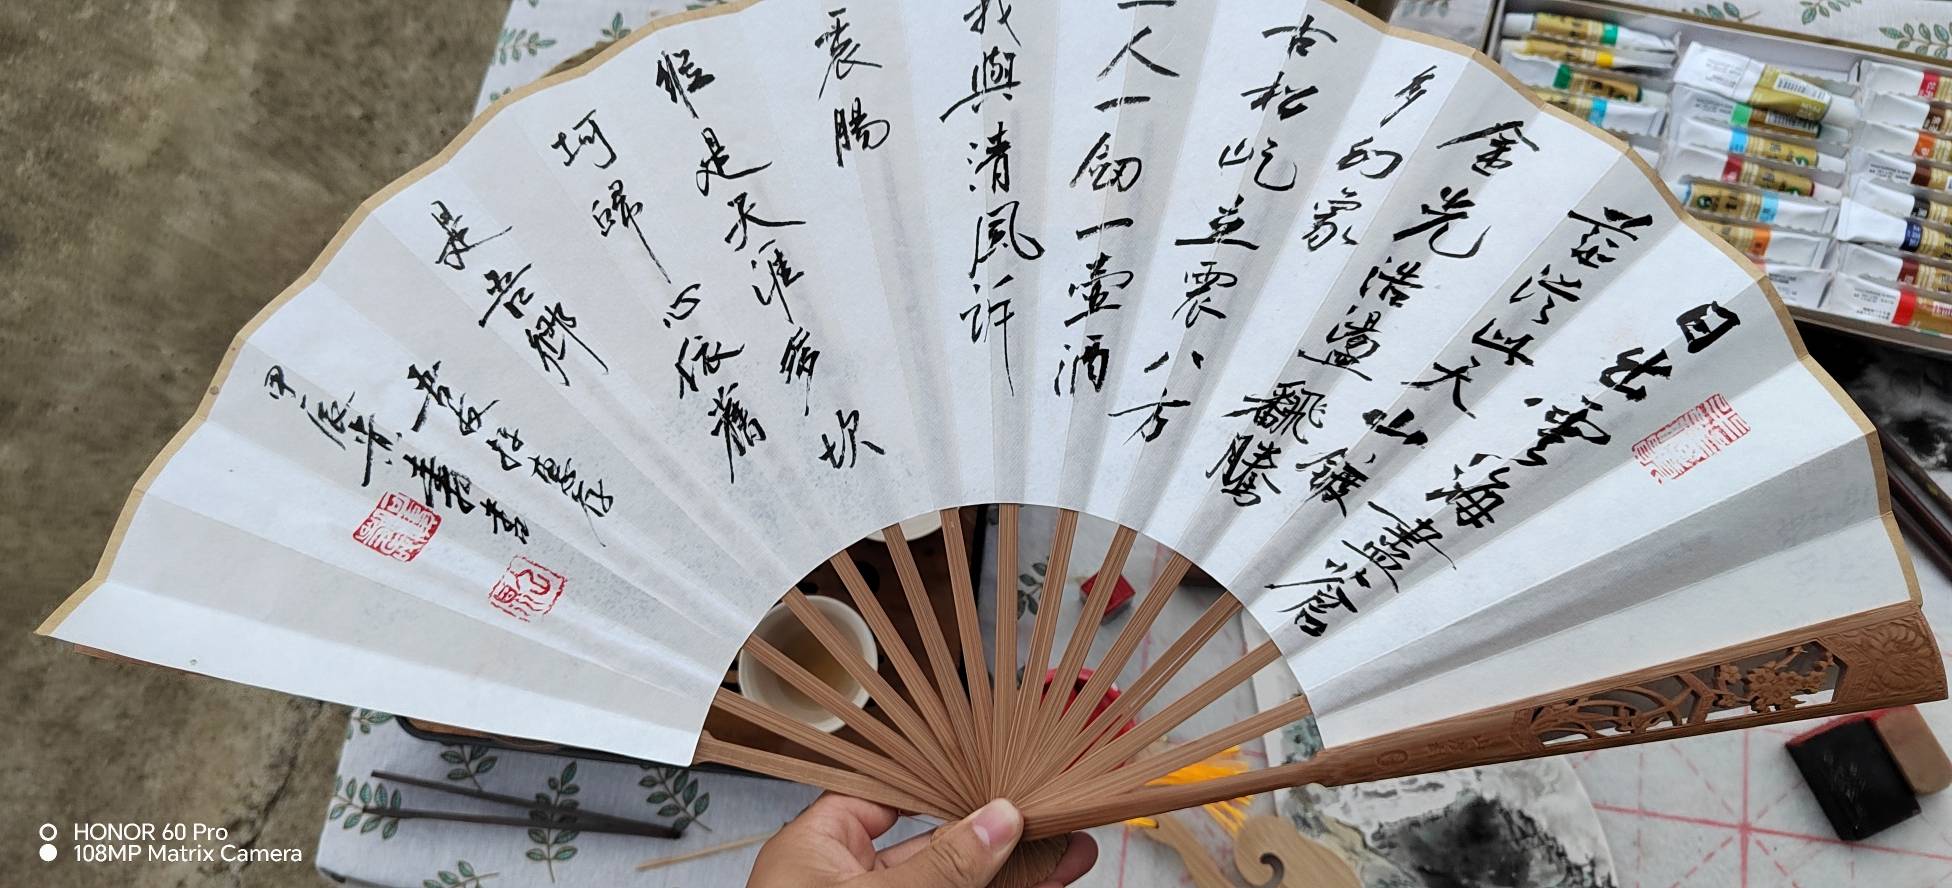 日出雲海
蒼茫此天山鍍盡蒼
金光浩盪翻騰
多幻象
古松屹立震八方
一人一劍一壺酒
我與清風許
衷腸
縱是天涯多坎
坷歸心依舊
是吾鄉
甲辰
HONOR 60 Pro
108MP Matrix Camera